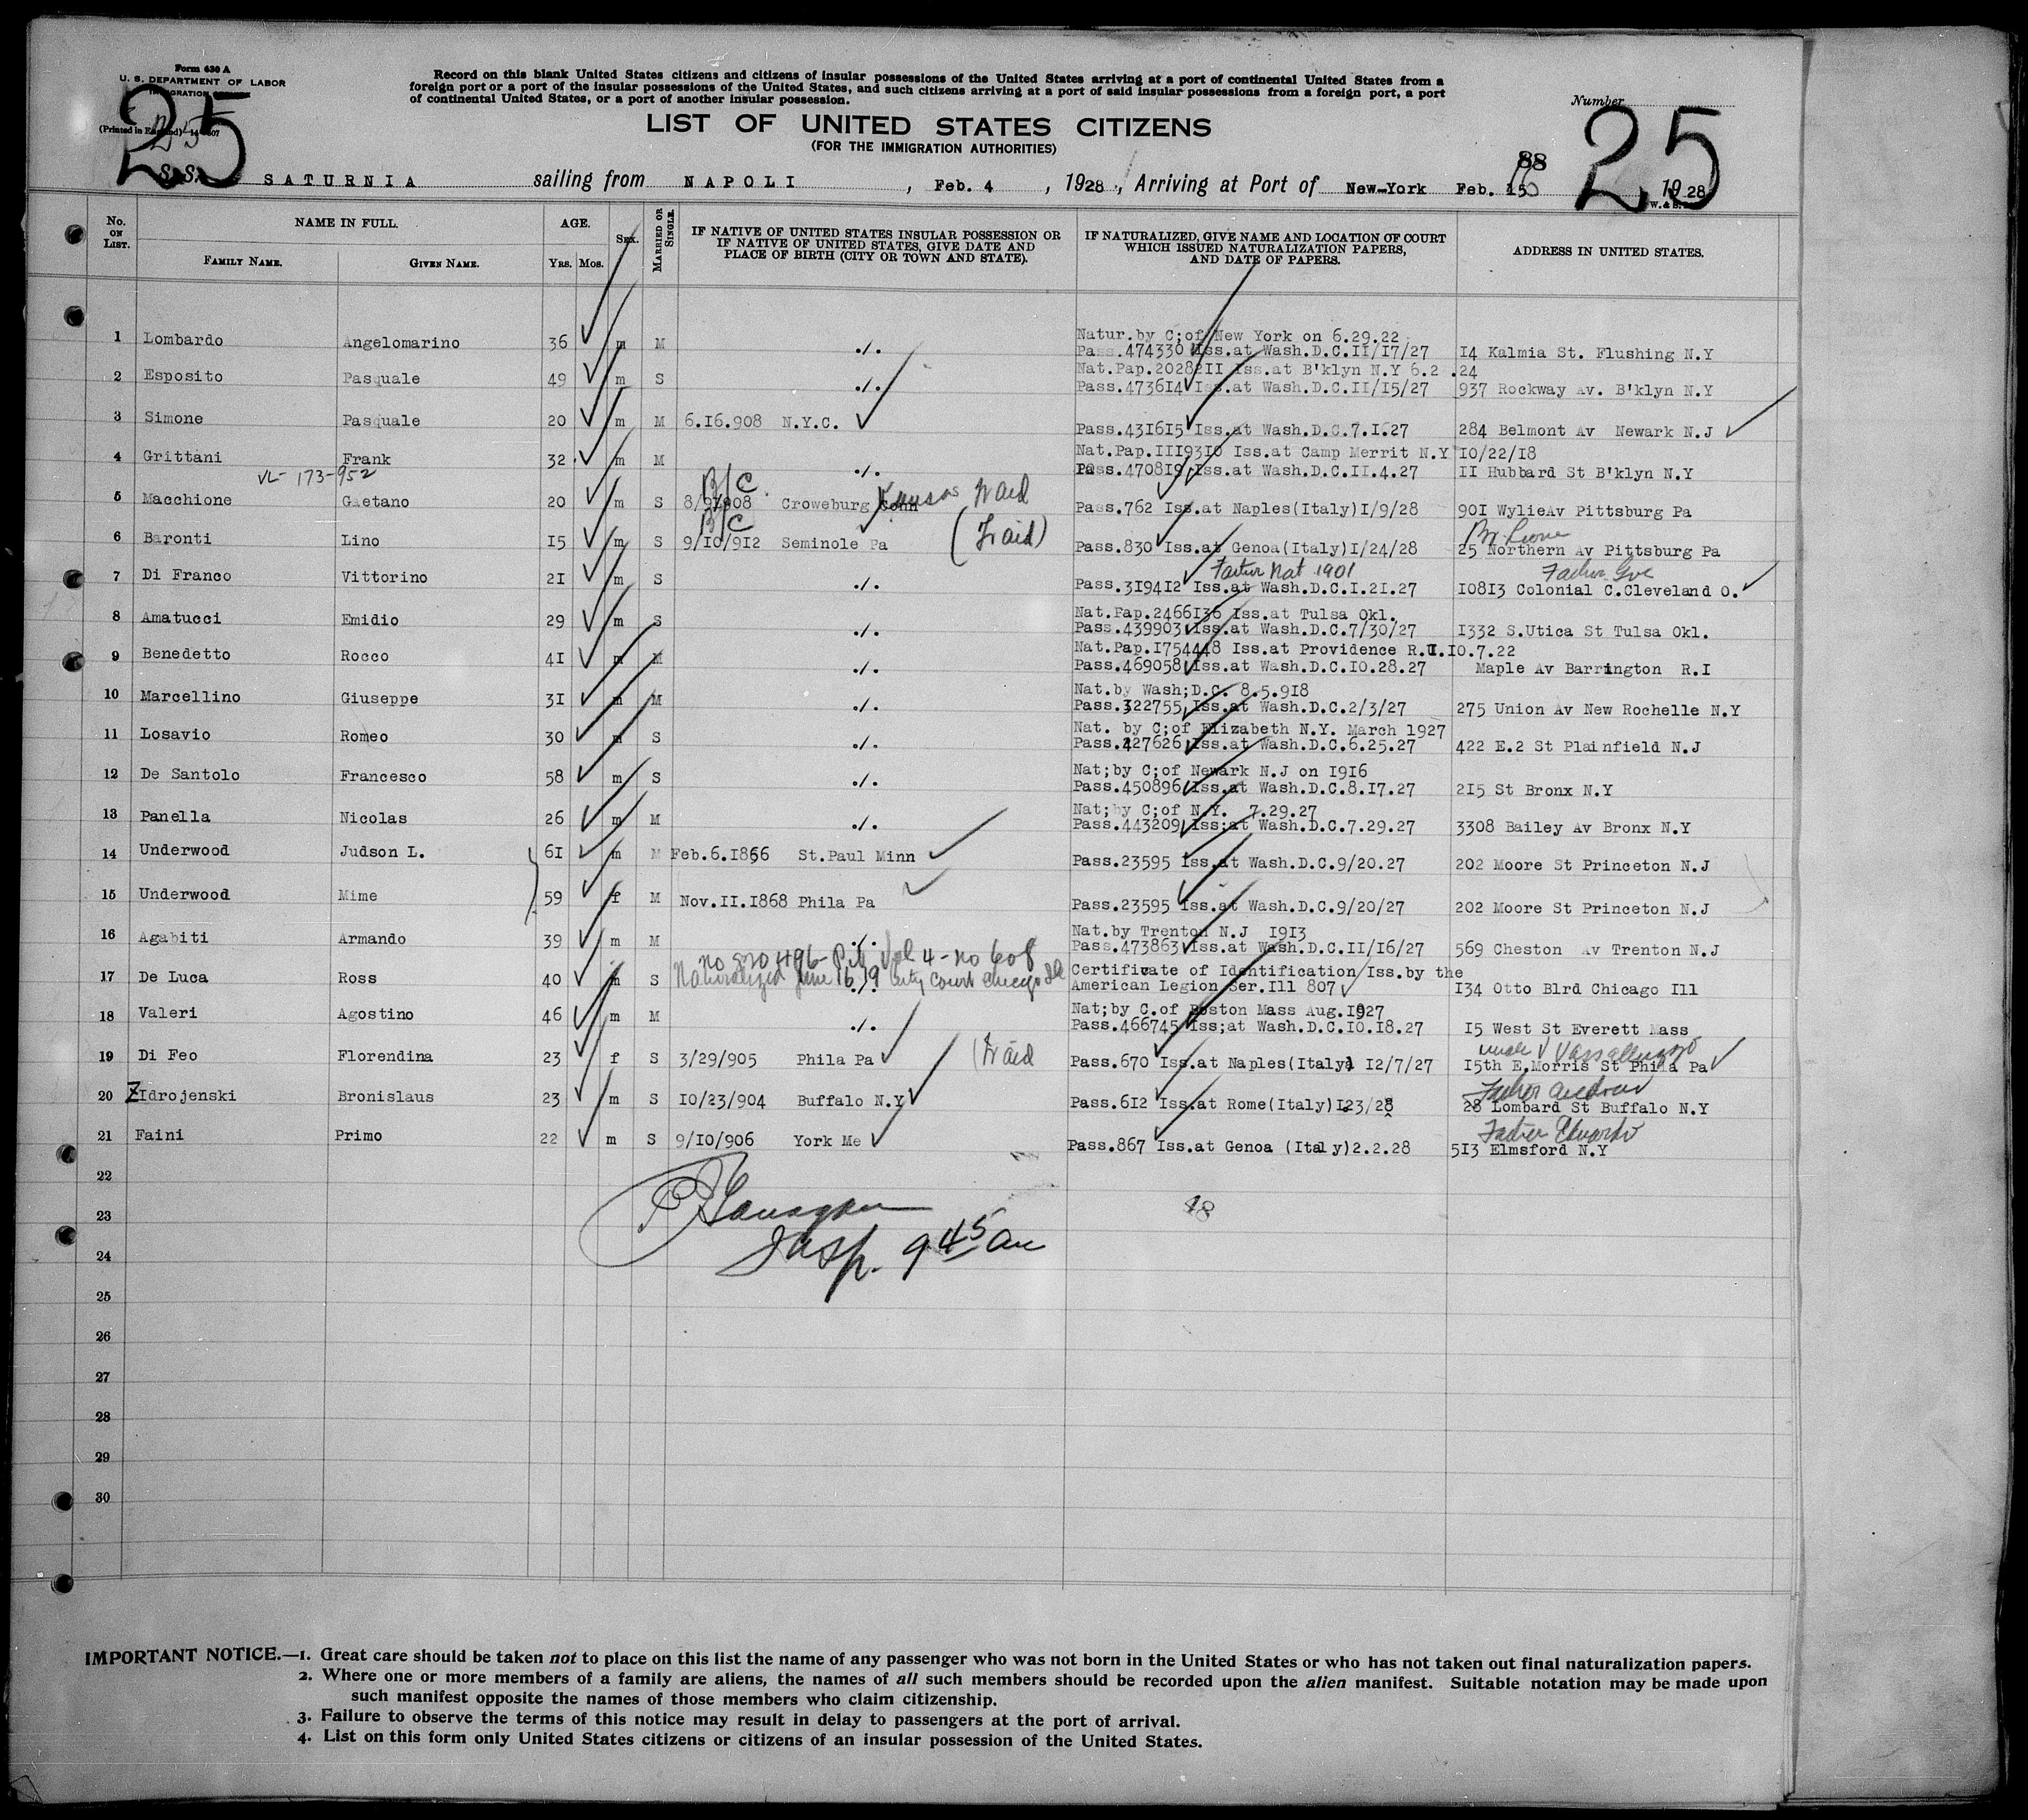 Form 630 A
U. S. DEPARTMENT OF LABOR
IMMIGRATION
(Printed in England) 14-607
25
Record on this blank United States citizens and citizens of insular possessions of the United States arriving at a port of continental United States from a
foreign port or a port of the insular possessions of the United States, and such citizens arriving at a port of said insular possessions from a foreign port, a port
of continental United States, or a port of another insular possession.
Number
25
LIST OF UNITED STATES CITIZENS
(FOR THE IMMIGRATION AUTHORITIES)
88
S.S. SATURNIA sailing from NAPOLI , Feb. 4 , 1928 , Arriving at Port of New-York Feb. 1928
No. ON LIST. NAME IN FULL. AGE. SEX. MARRIED OR SINGLE. IF NATIVE OF UNITED STATES INSULAR POSSESSION OR IF NATIVE OF UNITED STATES, GIVE DATE AND PLACE OF BIRTH (CITY OR TOWN AND STATE). IF NATURALIZED, GIVE NAME AND LOCATION OF COURT WHICH ISSUED NATURALIZATION PAPERS, AND DATE OF PAPERS. ADDRESS IN UNITED STATES.
FAMILY NAME. GIVEN NAME. YRS. MOS.
Natur.by C;of New York on 6.29.22
1 Lombardo Angelomarino 36 m M ./. Pass.474330 Iss.at Wash.D.C.II/I7/27 I4 Kalmia St. Flushing N.Y
Nat.Pap.2028211 Iss.at B'klyn N.Y 6.2 .24
2 Esposito Pasquale 49 m S ./. Pass.473614 Iss.at Wash.D.C.II/I5/27 937 Rockway Av. B'klyn N.Y
3 Simone Pasquale 20 m M 6.I6.908 N.Y.C. Pass.431615 Iss.at Wash.D.C.7.I.27 284 Belmont Av Newark N.J
Nat.Pap.III93I0 Iss.at Camp Merrit N.Y IO/22/I8
4 Grittani Frank 32 m M ./. Pass.470819 Iss.at Wash.D.C.II.4.27 II Hubbard St B'klyn N.Y
VL- 173-952
B/C Kansas
5 Macchione Gaetano 20 m S 8/9/908 Croweburg Conn Pass.762 Iss.at Naples(Italy)I/9/28 90I WylieAv Pittsburg Pa
B/C
6 Baronti Lino I5 m S 9/I0/9I2 Seminole Pa Pass.830 Iss.at Genoa(Italy)I/24/28 25 Northern Av Pittsburg Pa
Father Nat 1901
7 Di Franco Vittorino 2I m S ./. Pass.3I94I2 Iss.at Wash.D.C.I.2I.27 I08I3 Colonial C.Cleveland O.
Nat.Pap.2466I36 Iss.at Tulsa Okl.
8 Amatucci Emidio 29 m S ./. Pass.439903 Iss.at Wash.D.C.7/30/27 I332 S.Utica St Tulsa Okl.
Nat.Pap.I754448 Iss.at Providence R.I.I0.7.22
9 Benedetto Rocco 4I m M ./. Pass.469058 Iss.at Wash.D.C.I0.28.27 Maple Av Barrington R.I
Nat.by Wash;D.C. 8.5.9I8
10 Marcellino Giuseppe 3I m M ./. Pass.322755 Iss.at Wash.D.C.2/3/27 275 Union Av New Rochelle N.Y
Nat. by C;of Elizabeth N.Y. March I927
11 Losavio Romeo 30 m S ./. Pass.427626 Iss.at Wash.D.C.6.25.27 422 E.2 St Plainfield N.J
Nat;by C;of Newark N.J on I9I6
12 De Santolo Francesco 58 m S ./. Pass.450896 Iss.at Wash.D.C.8.I7.27 2I5 St Bronx N.Y
Nat;by C;of N.Y. 7.29.27
13 Panella Nicolas 26 m M ./. Pass.443209 Iss;at Wash.D.C.7.29.27 3308 Bailey Av Bronx N.Y
14 Underwood Judson L. 6I m M Feb.6.I866 St.Paul Minn Pass.23595 Iss.at Wash.D.C.9/20.27 202 Moore St Princeton N.J
15 Underwood Mime 59 f M Nov.II.I868 Phila Pa Pass.23595 Iss.at Wash.D.C.9/20/27 202 Moore St Princeton N.J
Nat.by Trenton N.J I9I3
16 Agabiti Armando 39 m M ./. Pass.473863 Iss.at Wash.D.C.II/I6/27 569 Cheston Av Trenton N.J
Certificate of Identification Iss.by the
17 De Luca Ross 40 m S Naturalized June 16 City Court Chicago American Legion Ser.Ill 807 I34 Otto Blrd Chicago Ill
Nat;by C.of Boston Mass Aug.I927
18 Valeri Agostino 46 m M ./. Pass.466745 Iss;at Wash.D.C.I0.I8.27 I5 West St Everett Mass
19 Di Feo Florendina 23 f S 3/29/905 Phila Pa Pass.670 Iss.at Naples(Italy) I2/7/27 I5th E.Morris St Phila Pa
20 ZIdrojenski Bronislaus 23 m S I0/23/904 Buffalo N.Y Pass.6I2 Iss.at Rome(Italy)I.23/28 28 Lombard St Buffalo N.Y
Father
21 Faini Primo 22 m S 9/I0/906 York Me Pass.867 Iss.at Genoa (Italy)2.2.28 5I3 Elmsford N.Y
22
23
18
Insp. 9 45 am
24
25
26
27
28
29
30
IMPORTANT NOTICE.—1. Great care should be taken not to place on this list the name of any passenger who was not born in the United States or who has not taken out final naturalization papers.
2. Where one or more members of a family are aliens, the names of all such members should be recorded upon the alien manifest. Suitable notation may be made upon
such manifest opposite the names of those members who claim citizenship.
3. Failure to observe the terms of this notice may result in delay to passengers at the port of arrival.
4. List on this form only United States citizens or citizens of an insular possession of the United States.